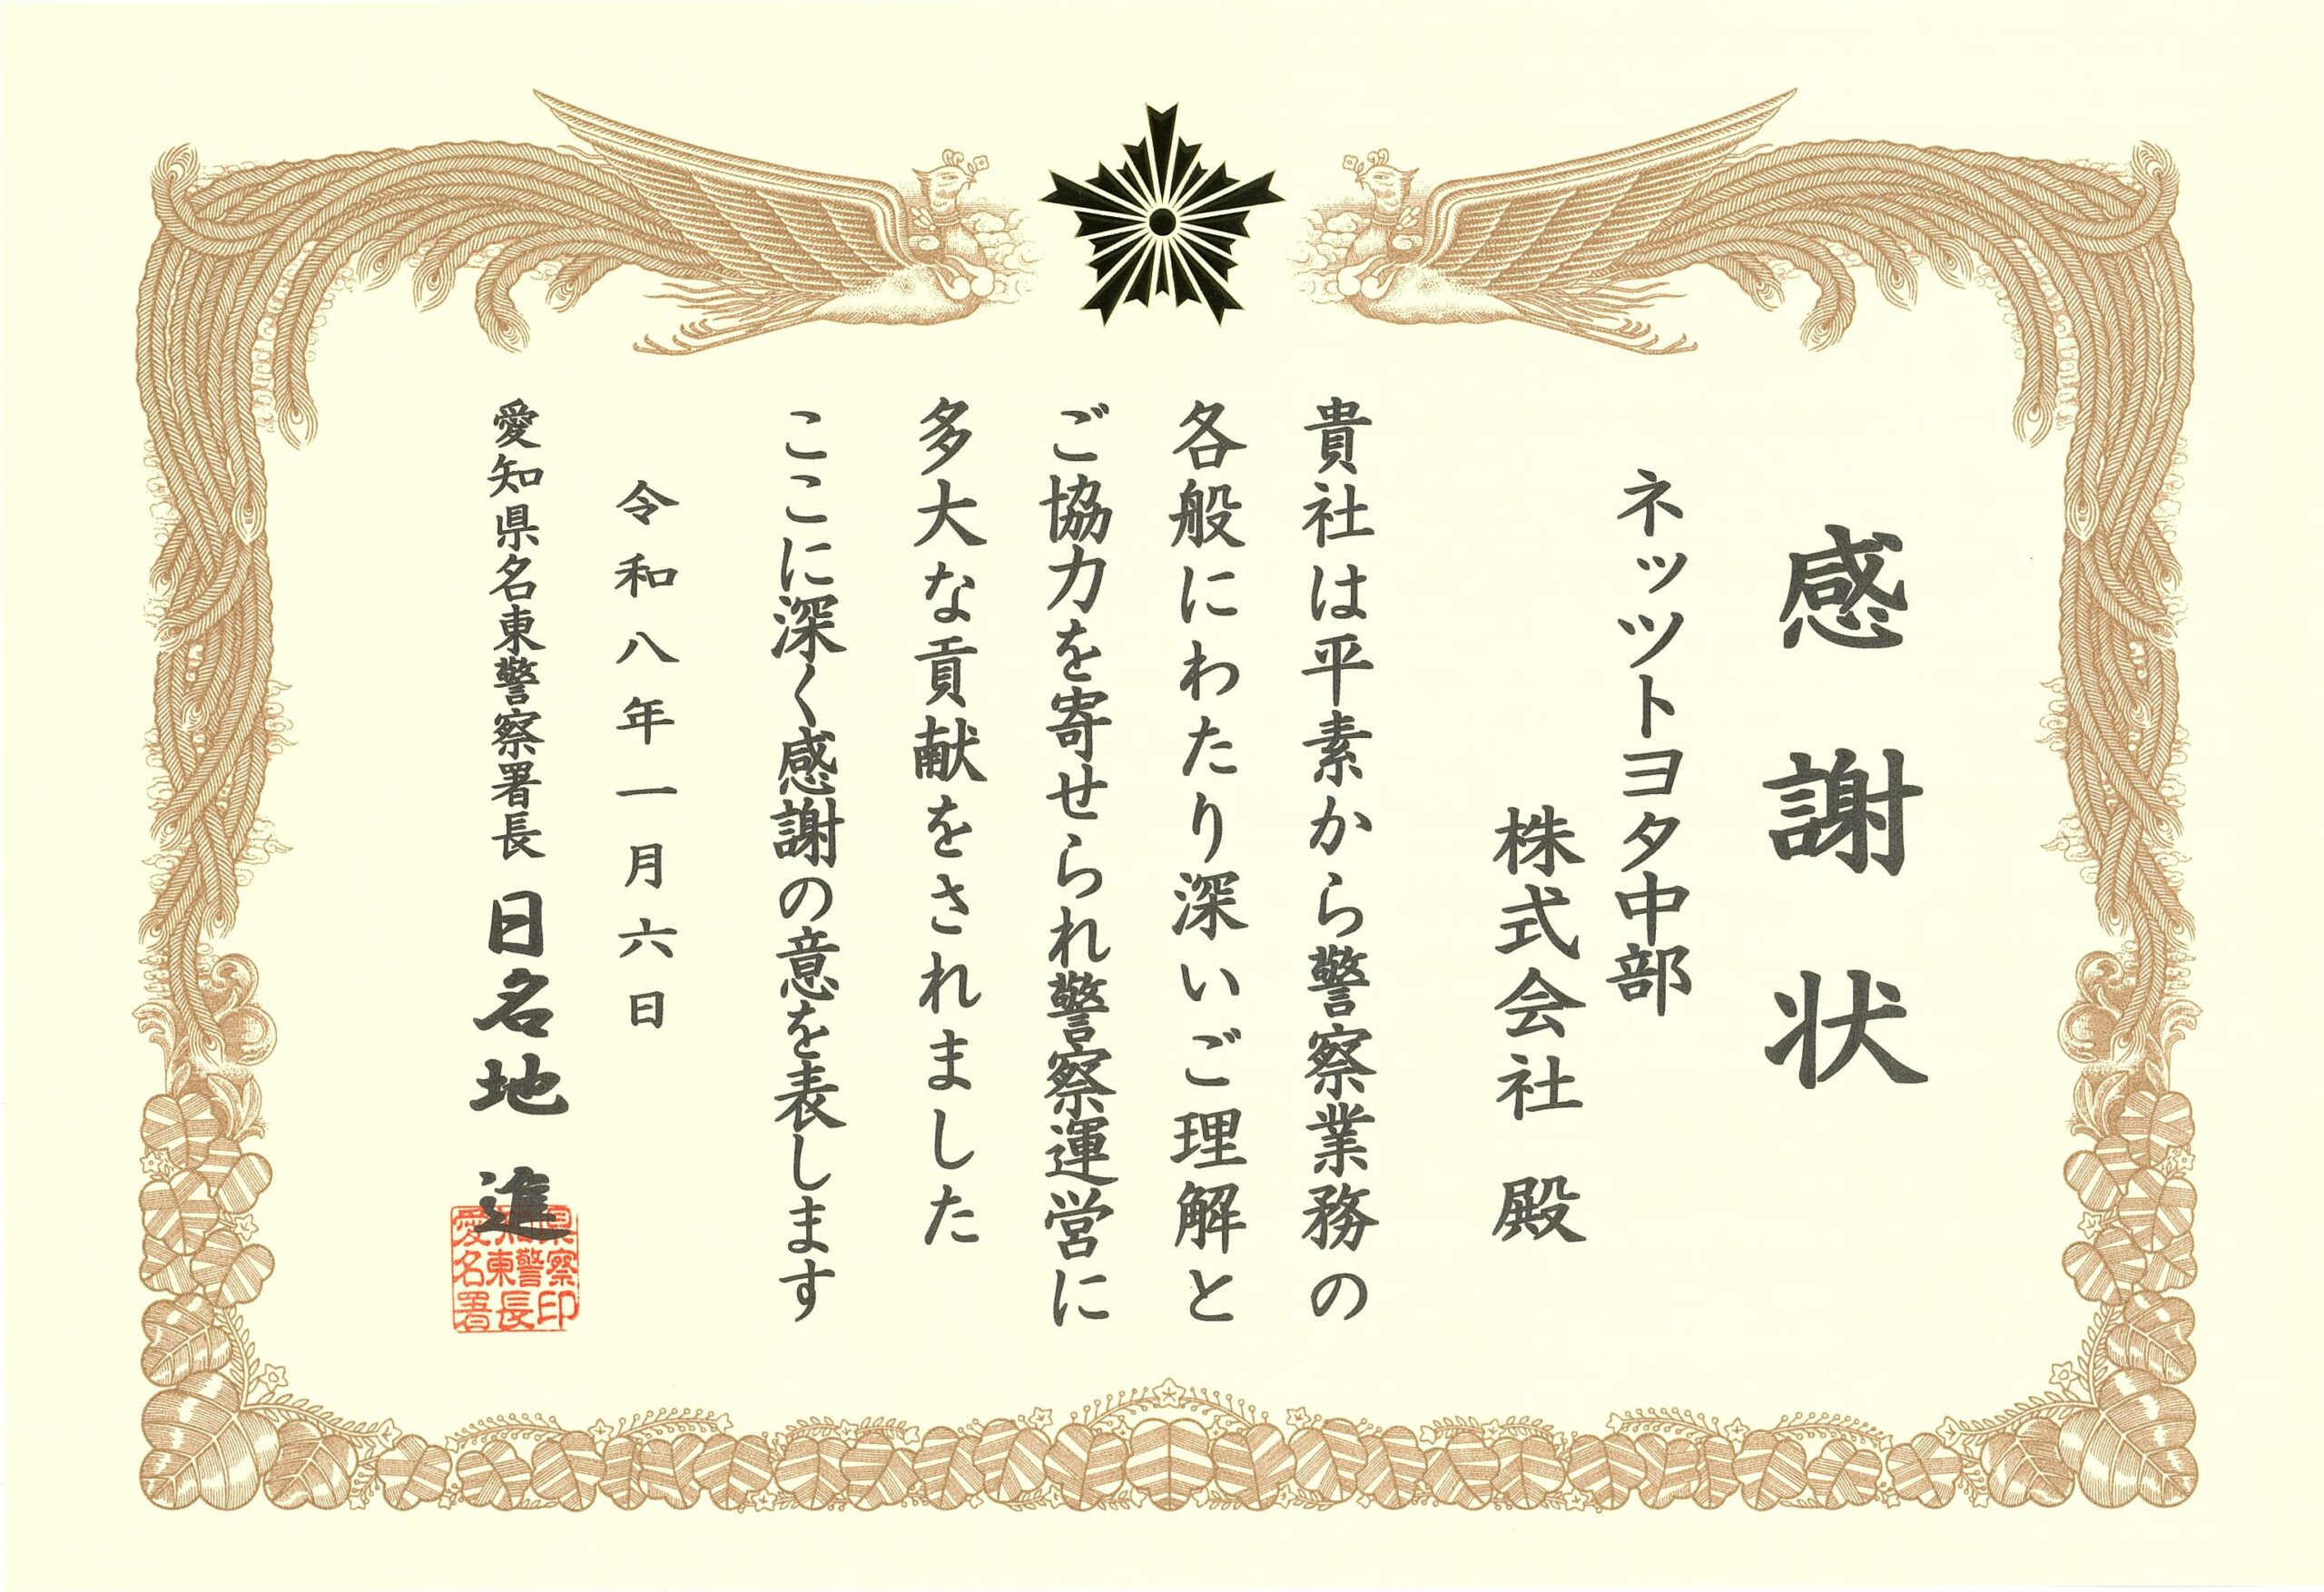 感謝状
ネッツトヨタ中部
株式会社 殿
貴社は平素から警察業務の
各般にわたり深いご理解と
ご協力を寄せられ警察運営に
多大な貢献をされました
ここに深く感謝の意を表します
令和八年一月六日
愛知県名東警察署長 日名地 進
愛知県
名東警察
署長印